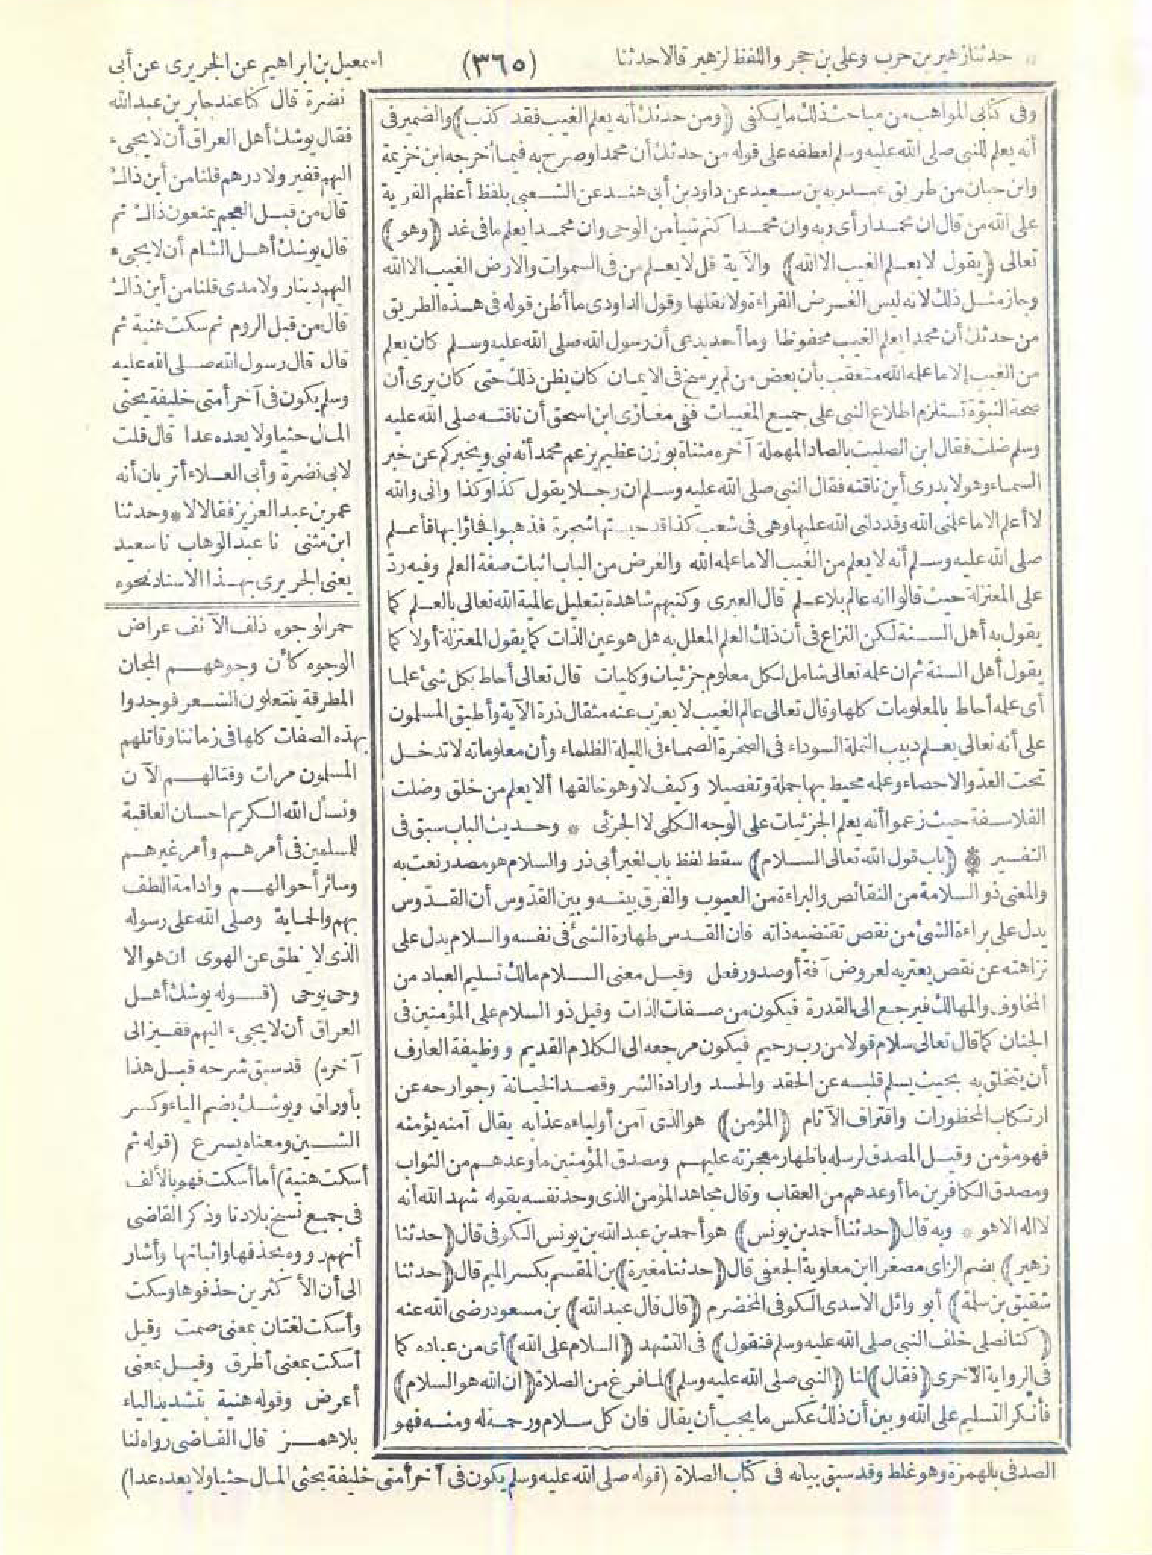 حدثنا زهير بن حرب وعلى بن حجر واللفظ لزهير قالا حدثنا
(٣٦٥)
اسمعيل بن ابراهيم عن الجريرى عن أبى
نضرة قال كنا عند جابر بن عبد الله
فقال يوشك أهل العراق أن لا يجىء
اليهم قفيز ولا درهم قلنا من أين ذاك
قال من قبل العجم يمنعون ذاك ثم
قال يوشك أهل الشام أن لا يجىء
اليهم دينار ولا مدى قلنا من أين ذاك
قال من قبل الروم ثم سكت هنية ثم
قال قال رسول الله صلى الله عليه
وسلم يكون فى آخر أمتى خليفة يحثى
المال حثيا ولا يعده عدا قال قلت
لابى نضرة وأبى العلاء أتريان أنه
عمر بن عبد العزيز فقالا لا * وحدثنا
ابن مثنى نا عبد الوهاب نا سعيد
يعنى الجريرى بهذا الاسناد نحوه
حمر الوجوه ذلف الآنف عراض
الوجوه كأن وجوههم المجان
المطرقة ينتعلون الشعر فوجدوا
بهذه الصفات كلها فى زماننا وقاتلهم
المسلمون مرات وقتالهم الآن
ونسأل الله الكريم احسان العاقبة
للمسلمين فى أمرهم وأمر غيرهم
وسائر أحوالهم وادامة اللطف
بهم والحماية وصلى الله على رسوله
الذى لا ينطق عن الهوى ان هو الا
وحى يوحى (قوله يوشك أهل
العراق أن لا يجىء اليهم قفيز الى
آخره) قد سبق شرحه قبل هذا
بأوراق ويوشك بضم الياء وكسر
الشين ومعناه يسرع (قوله ثم
أسكت هنية) أما أسكت فهو بالألف
فى جميع نسخ بلادنا وذكر القاضى
أنهم رووه بحذفها واثباتها وأشار
الى أن الأكثرين حذفوها وسكت
وأسكت لغتان بمعنى صمت وقيل
أسكت بمعنى أطرق وقيل بمعنى
أعرض وقوله هنية بتشديد الياء
بلا همز قال القاضى رواه لنا
الصدفى بالهمزة وهو غلط وقد سبق بيانه فى كتاب الصلاة (قوله صلى الله عليه وسلم يكون فى آخر أمتى خليفة يحثى المال حثيا ولا يعده عدا)
وفى كتابى المواهب من مباحث ذلك ما يكفى (ومن حدثك أنه يعلم الغيب فقد كذب) والضمير فى
أنه يعلم للنبى صلى الله عليه وسلم لعطفه على قوله من حدثك أن محمدا وصرح به فيما أخرجه ابن خزيمة
وابن حبان من طريق عبد ربه بن سعيد عن داود بن أبى هند عن الشعبى بلفظ أعظم الفرية
على الله من قال ان محمدا رأى ربه وان محمدا كتم شيأ من الوحى وان محمدا يعلم ما فى غد (وهو)
تعالى (يقول لا يعلم الغيب الا الله) والآية قل لا يعلم من فى السموات والارض الغيب الا الله
وجاز مثل ذلك لانه ليس الغرض القراءة ولا نقلها وقول الداودى ما أظن قوله فى هذه الطريق
من حدثك أن محمدا يعلم الغيب محفوظا وما أحد يدعى أن رسول الله صلى الله عليه وسلم كان يعلم
من الغيب إلا ما علمه الله متعقب بأن بعض من لم يرسخ فى الايمان كان يظن ذلك حتى كان يرى أن
صحة النبوة تستلزم اطلاع النبى على جميع المغيبات ففى مغازى ابن اسحق أن ناقته صلى الله عليه
وسلم ضلت فقال ابن الصليت بالصاد المهملة آخره مثناة بوزن عظيم يزعم محمد أنه نبى ويخبركم عن خبر
السماء وهو لا يدرى أين ناقته فقال النبى صلى الله عليه وسلم ان رجلا يقول كذا وكذا وانى والله
لا أعلم الا ما علمنى الله وقد دلنى الله عليها وهى فى شعب كذا قد حبستها شجرة فذهبوا فجاؤا بها فأعلم
صلى الله عليه وسلم أنه لا يعلم من الغيب الا ما علمه الله والغرض من الباب اثبات صفة العلم وفيه رد
على المعتزلة حيث قالوا انه عالم بلا علم قال العبرى وكتبهم شاهدة بتعليل عالمية الله تعالى بالعلم كما
يقول به أهل السنة لكن النزاع فى أن ذلك العلم المعلل به هل هو عين الذات كما يقول المعتزلة أولا كما
يقول أهل السنة ثم ان علمه تعالى شامل لكل معلوم جزئيات وكليات قال تعالى أحاط بكل شئ علما
أى علمه أحاط بالمعلومات كلها وقال تعالى عالم الغيب لا يعزب عنه مثقال ذرة الآية وأطبق المسلمون
على أنه تعالى يعلم دبيب النملة السوداء فى الصخرة الصماء فى الليلة الظلماء وأن معلوماته لا تدخل
تحت العد والاحصاء وعلمه محيط بها جملة وتفصيلا وكيف لا وهو خالقها ألا يعلم من خلق وضلت
الفلاسفة حيث زعموا أنه يعلم الجزئيات على الوجه الكلى لا الجزئى * وحديث الباب سبق فى
التفسير * (باب قول الله تعالى السلام) سقط لفظ باب لغير أبى ذر والسلام هو مصدر نعت به
والمعنى ذو السلامة من النقائص والبراءة من العيوب والفرق بينه وبين القدوس أن القدوس
يدل على براءة الشئ من نقص تقتضيه ذاته فان القدس طهارة الشئ فى نفسه والسلام يدل على
نزاهته عن نقص يعتريه لعروض آفة أو صدور فعل وقيل معنى السلام مالك تسليم العباد من
المخاوف والمهالك فيرجع الى القدرة فيكون من صفات الذات وقيل ذو السلام على المؤمنين فى
الجنان كما قال تعالى سلام قولا من رب رحيم فيكون مرجعه الى الكلام القديم ووظيفة العارف
أن يتخلق به بحيث يسلم قلبه عن الحقد والحسد وارادة الشر وقصد الخيانة وجوارحه عن
ارتكاب المحظورات واقتراف الآثام (المؤمن) هو الذى آمن أولياءه عذابه يقال آمنه يؤمنه
فهو مؤمن وقيل المصدق لرسله باظهار معجزته عليهم ومصدق المؤمنين ما وعدهم من الثواب
ومصدق الكافرين ما أوعدهم من العقاب وقال مجاهد المؤمن الذى وحد نفسه بقوله شهد الله أنه
لا اله الا هو * وبه قال (حدثنا أحمد بن يونس) هو أحمد بن عبد الله بن يونس الكوفى قال (حدثنا
زهير) بضم الزاى مصغرا ابن معاوية الجعفى قال (حدثنا مغيرة) بن المقسم بكسر الميم قال (حدثنا
شقيق بن سلمة) أبو وائل الاسدى الكوفى المخضرم (قال قال عبد الله) بن مسعود رضى الله عنه
(كنا نصلى خلف النبى صلى الله عليه وسلم فنقول) فى التشهد (السلام على الله) أى من عباده كما
فى الرواية الاخرى (فقال) لنا (النبى صلى الله عليه وسلم) لما فرغ من الصلاة (ان الله هو السلام)
فأنكر التسليم على الله وبين أن ذلك عكس ما يجب أن يقال فان كل سلام ورحمة له ومنه فهو